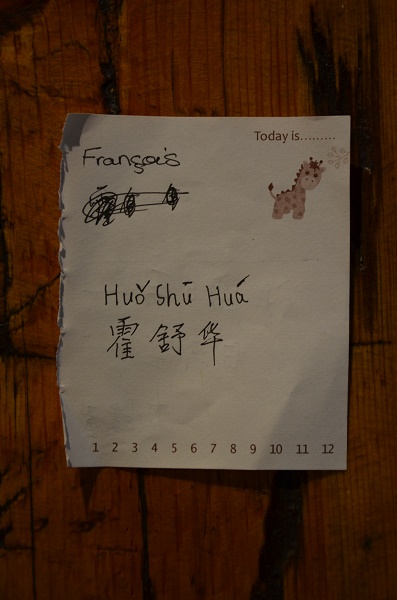 Today is.........
François
Huǒ Shū Huá
霍舒华
1 2 3 4 5 6 7 8 9 10 11 12